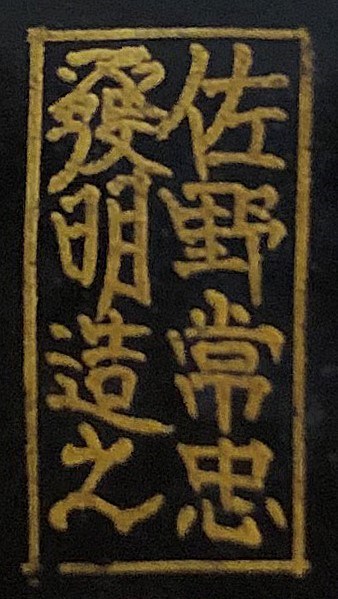 佐野常忠
發明造之